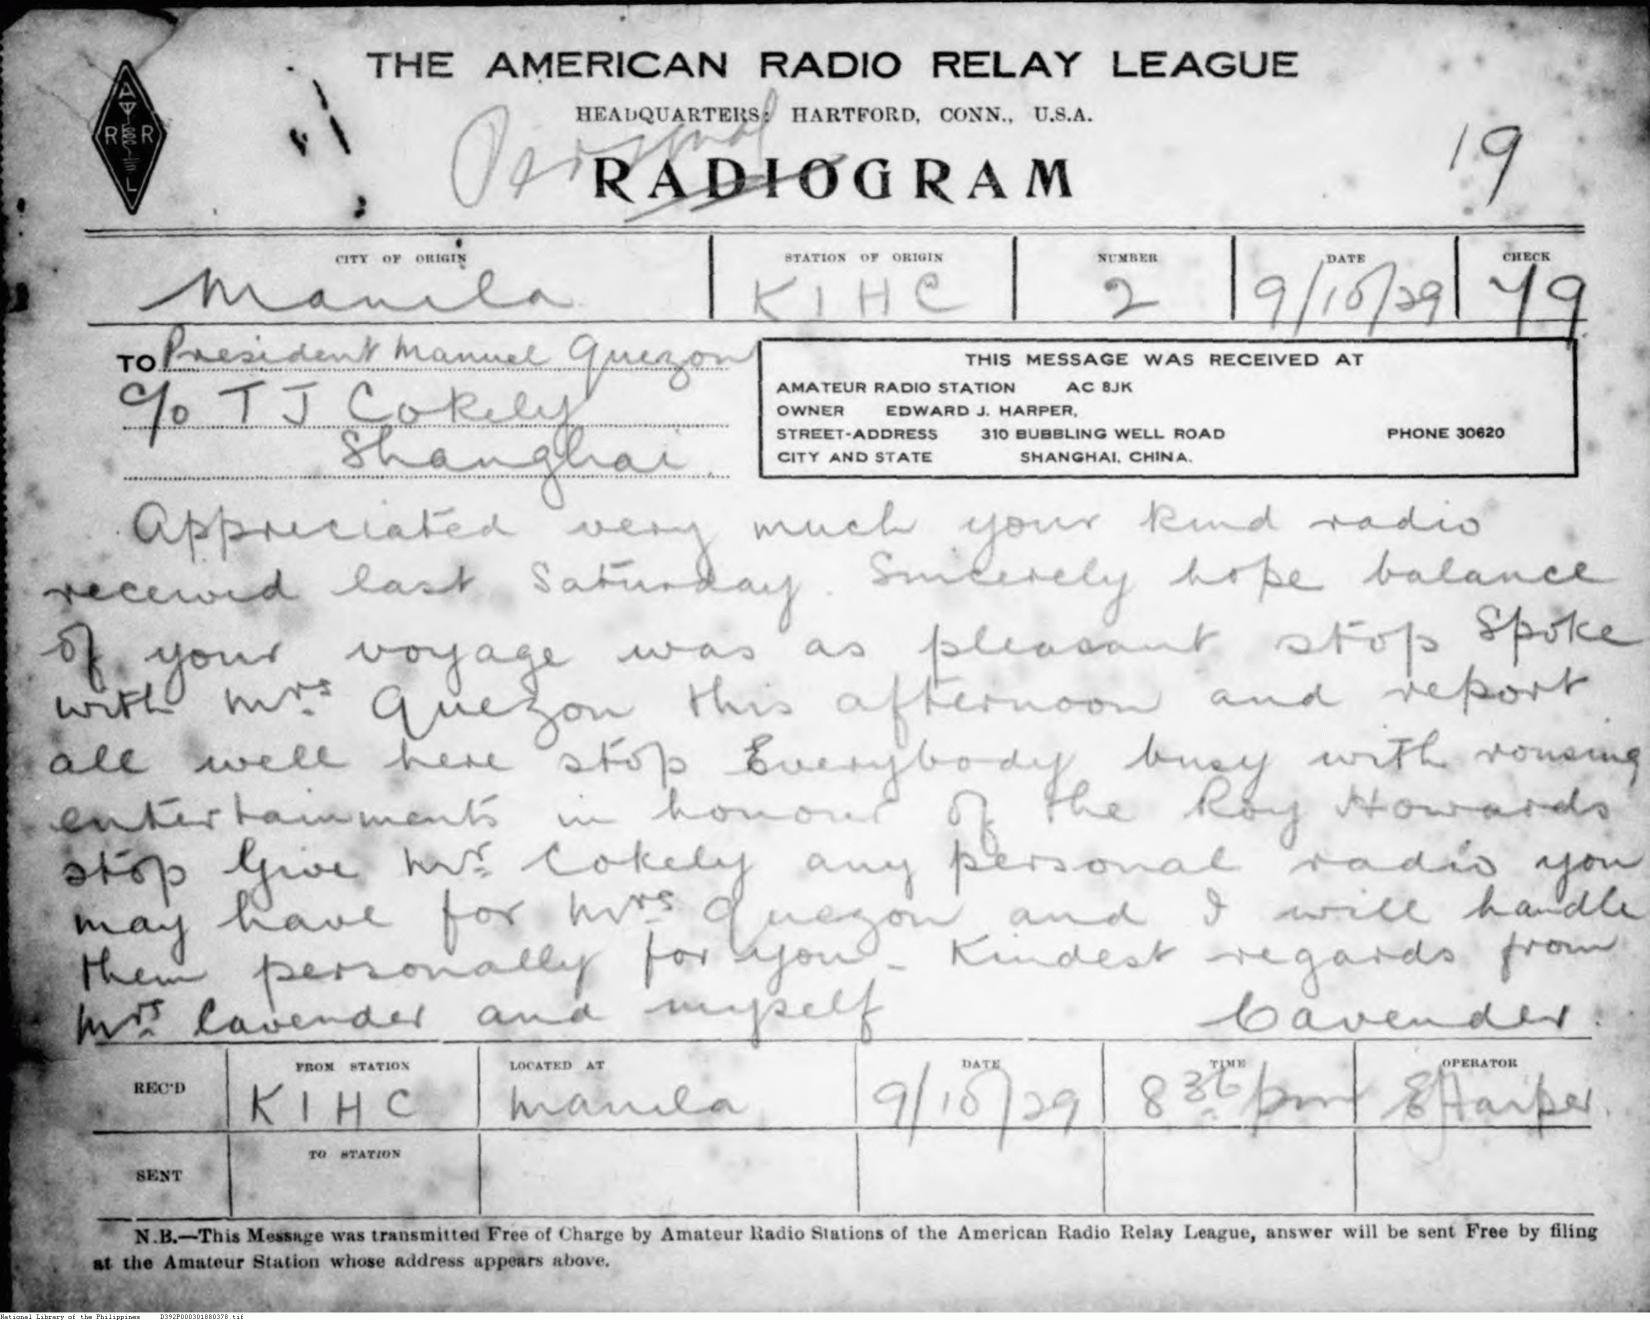 THE AMERICAN RADIO RELAY LEAGUE
HEADQUARTERS: HARTFORD, CONN., U.S.A.
Personal
RADIOGRAM
19
A
R R
L
CITY OF ORIGIN STATION OF ORIGIN NUMBER DATE CHECK
Manila K1HC 2 9/10/29 79
TO President Manuel Quezon
c/o T J Cokely
Shanghai
THIS MESSAGE WAS RECEIVED AT
AMATEUR RADIO STATION AC 8JK
OWNER EDWARD J. HARPER,
STREET-ADDRESS 310 BUBBLING WELL ROAD PHONE 30620
CITY AND STATE SHANGHAI, CHINA.
Appreciated very much your kind radio
received last Saturday. Sincerely hope balance
of your voyage was as pleasant stop Spoke
with Mrs. Quezon this afternoon and report
all well here stop Everybody busy with rousing
entertainments in honour of the Roy Howards
stop Give Mr. Cokely any personal radio you
may have for Mrs. Quezon and I will handle
them personally for you - Kindest regards from
Mrs. Cavender and myself Cavender.
REC'D FROM STATION LOCATED AT DATE TIME OPERATOR
K1HC Manila 9/10/29 8 36 pm EJHarper.
SENT TO STATION
N.B.—This Message was transmitted Free of Charge by Amateur Radio Stations of the American Radio Relay League, answer will be sent Free by filing
at the Amateur Station whose address appears above.
National Library of the Philippines D392P000301880378.tif